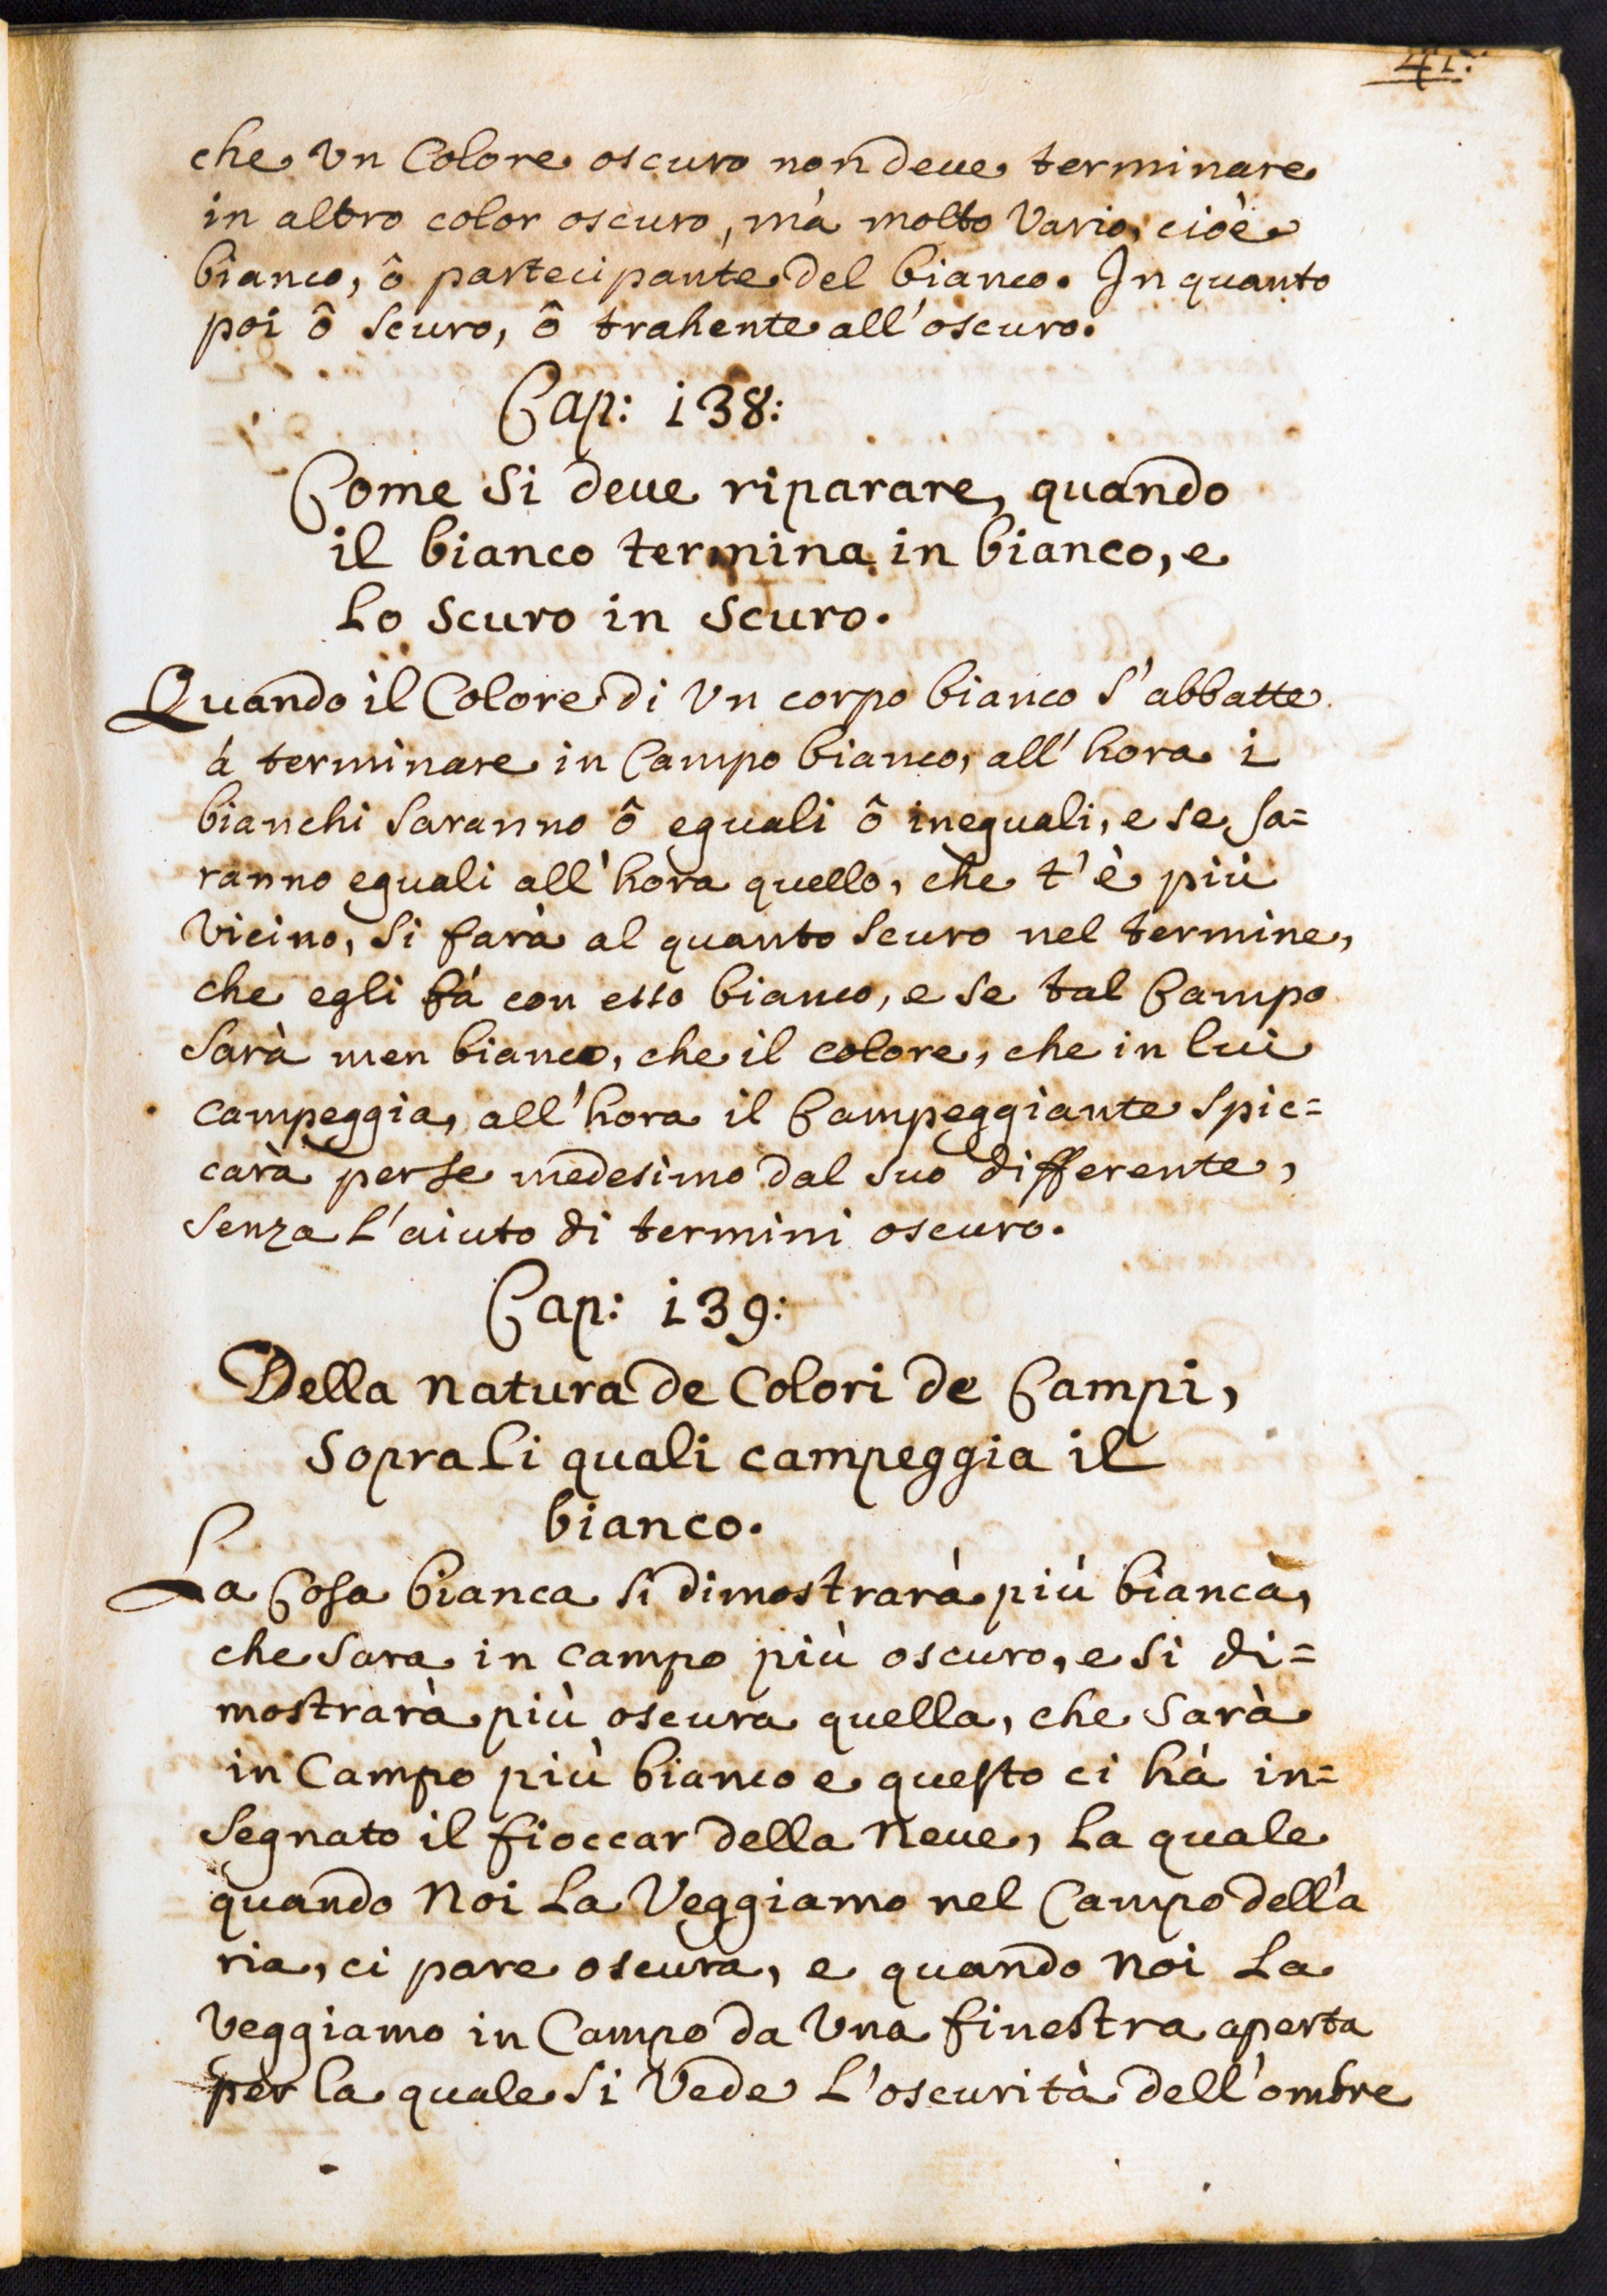 41:
che Vn Colore oscuro non deue terminare
in altro color oscuro, mà molto Vario, cioè
bianco, ô partecipante del bianco. In quanto
poi ô scuro, ô trahente all'oscuro.
Cap: 138:
Come si deue riparare, quando
il bianco termina in bianco, e
Lo scuro in scuro.
Quando il Colore di Vn corpo bianco s'abbatte
á terminare in Campo bianco, all'hora i
bianchi saranno ô eguali ô ineguali, e se sa=
ranno eguali all'hora quello, che t'è più
Vicino, si farà al quanto scuro nel termine,
che egli fá con esso bianco, e se tal Campo
sarà men bianco, che il colore, che in lui
campeggia, all'hora il Campeggiante spic=
carà perse medesimo dal suo differente,
senza L'aiuto di termini oscuro.
Cap: 139:
Della natura de Colori de Campi,
sopra Li quali campeggia il
bianco.
La Cosa bianca si dimostrarà più bianca,
che sara in campo più oscuro, e si di=
mostrarà più oscura quella, che sarà
in Campo più bianco e questo ci há in=
segnato il fioccar della Neue, La quale
quando Noi La Veggiamo nel Campo dell'a
ria, ci pare oscura, e quando Noi La
Veggiamo in Campo da Vna finestra aperta
per la quale si Vede L'oscurità dell'ombre